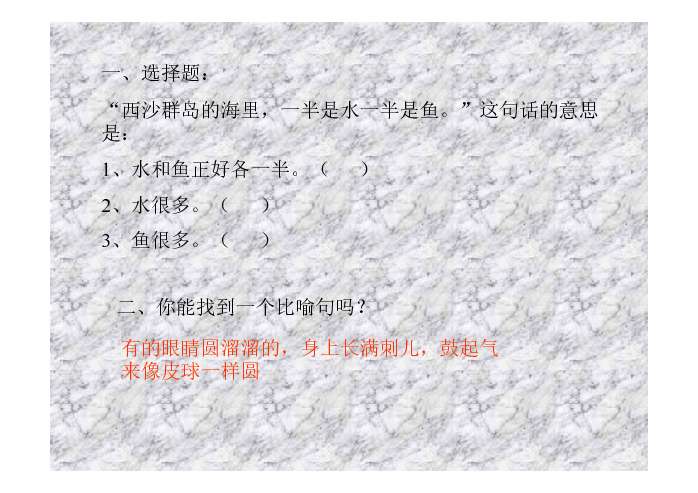 一、选择题：
“西沙群岛的海里，一半是水一半是鱼。”这句话的意思
是：
1、水和鱼正好各一半。（　）
2、水很多。（　）
3、鱼很多。（　）
二、你能找到一个比喻句吗？
有的眼睛圆溜溜的，身上长满刺儿，鼓起气
来像皮球一样圆